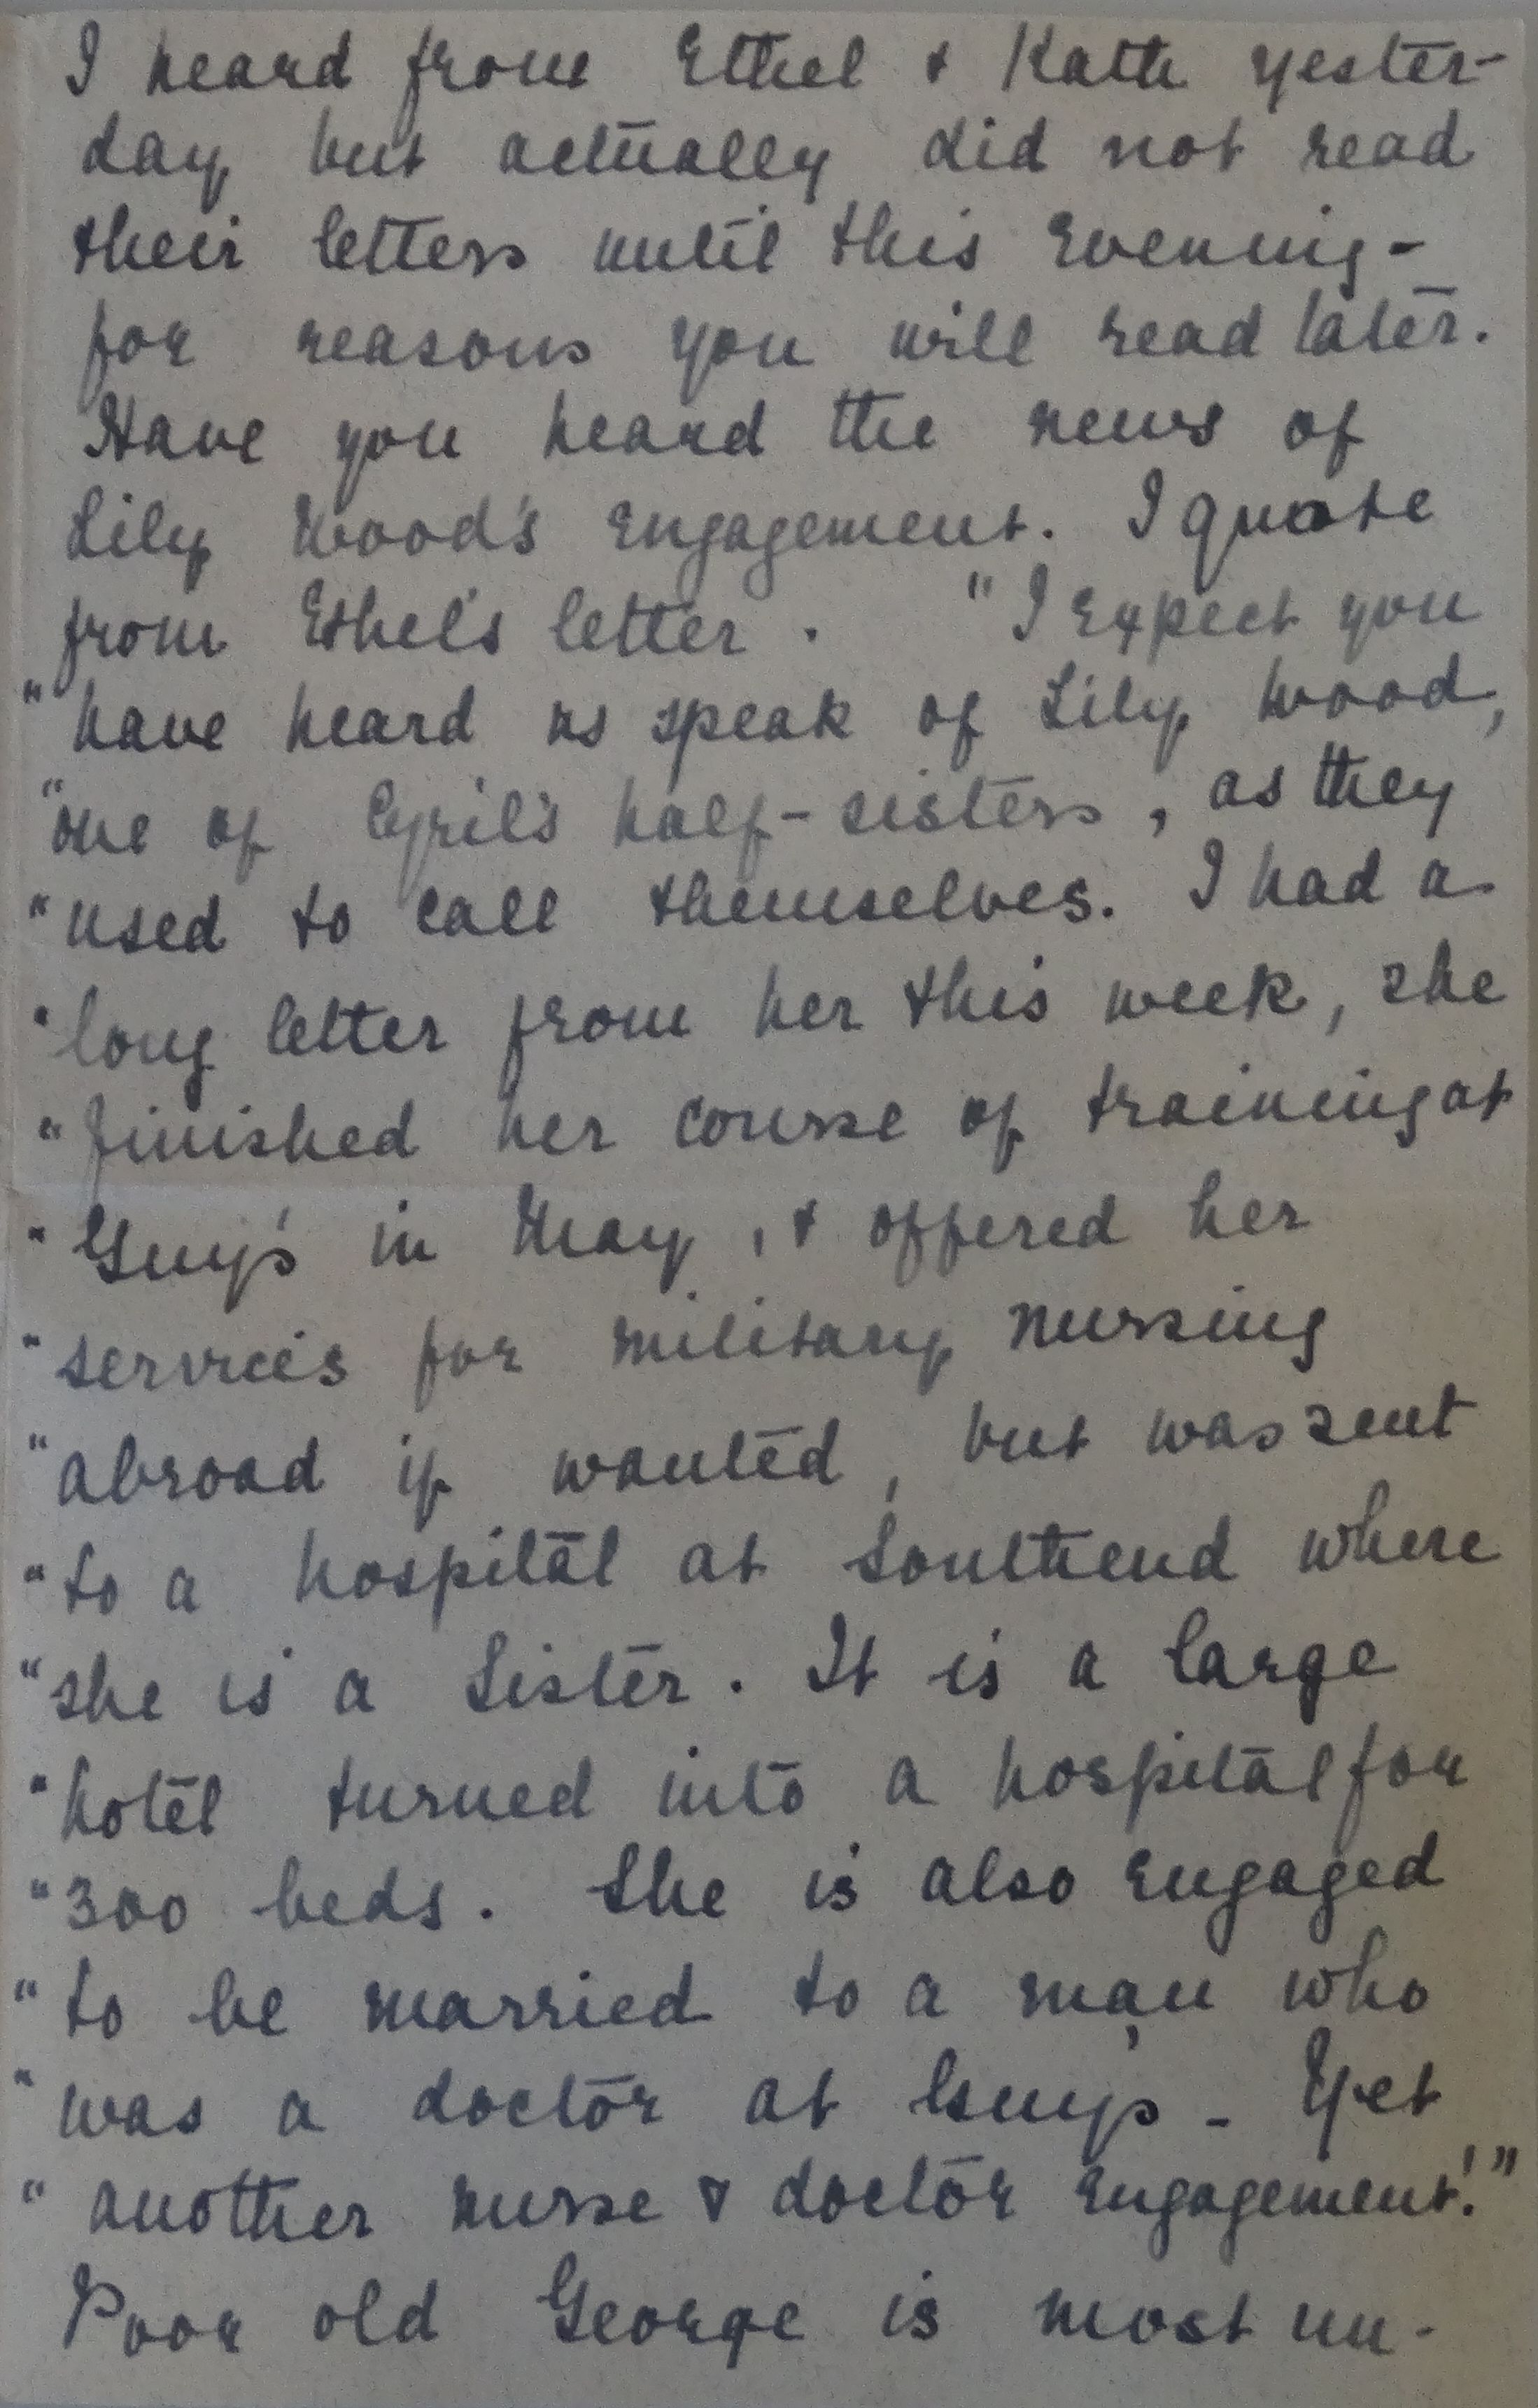 I heard from Ethel & Kath yester-
day but actually did not read
their letters until this evening -
for reasons you will read later.
Have you heard the news of
Lily Wood's engagement. I quote
from Ethel's letter. "I expect you
"have heard us speak of Lily Wood,
"one of Cyril's half-sisters, as they
"used to call themselves. I had a
"long letter from her this week, she
"finished her course of training at
"Guy's in May, & offered her
"services for military nursing
"abroad if wanted, but was sent
"to a hospital at Southend where
"she is a Sister. It is a large
"hotel turned into a hospital for
"300 beds. She is also engaged
"to be married to a man who
"was a doctor at Guy's - Yet
"another nurse & doctor engagement!"
Poor old George is most un-